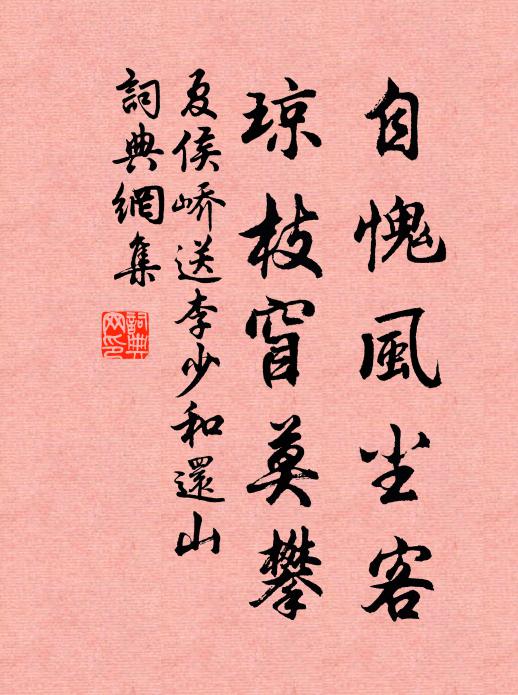 自愧風尘客
琼枝窅莫攀
夏侯嶠送李少和還山
詞典網集
詞典
网印